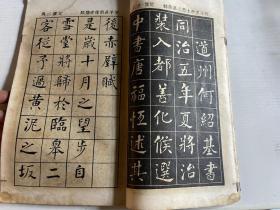 道州何紹基書
同治五年夏將治
裝入都善化候選
中書唐福恆述其
後赤壁賦
是歲十月之望步自
雪堂將歸於臨皋二
客從予過黃泥之坂